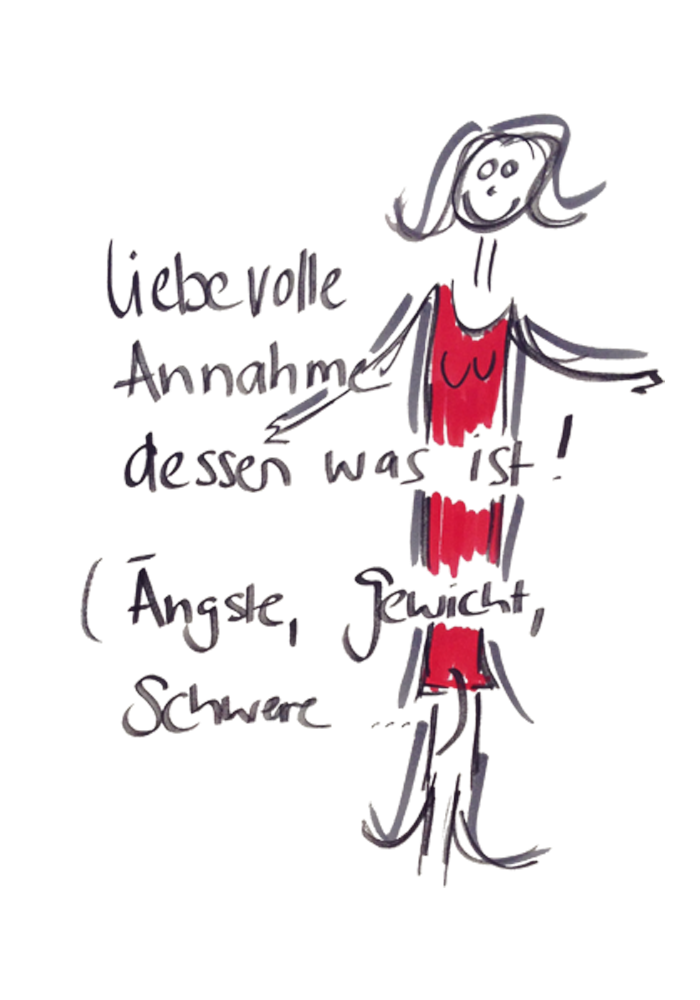 liebevolle
Annahme
dessen was ist!
(Ängste, Gewicht,
Schwere ....